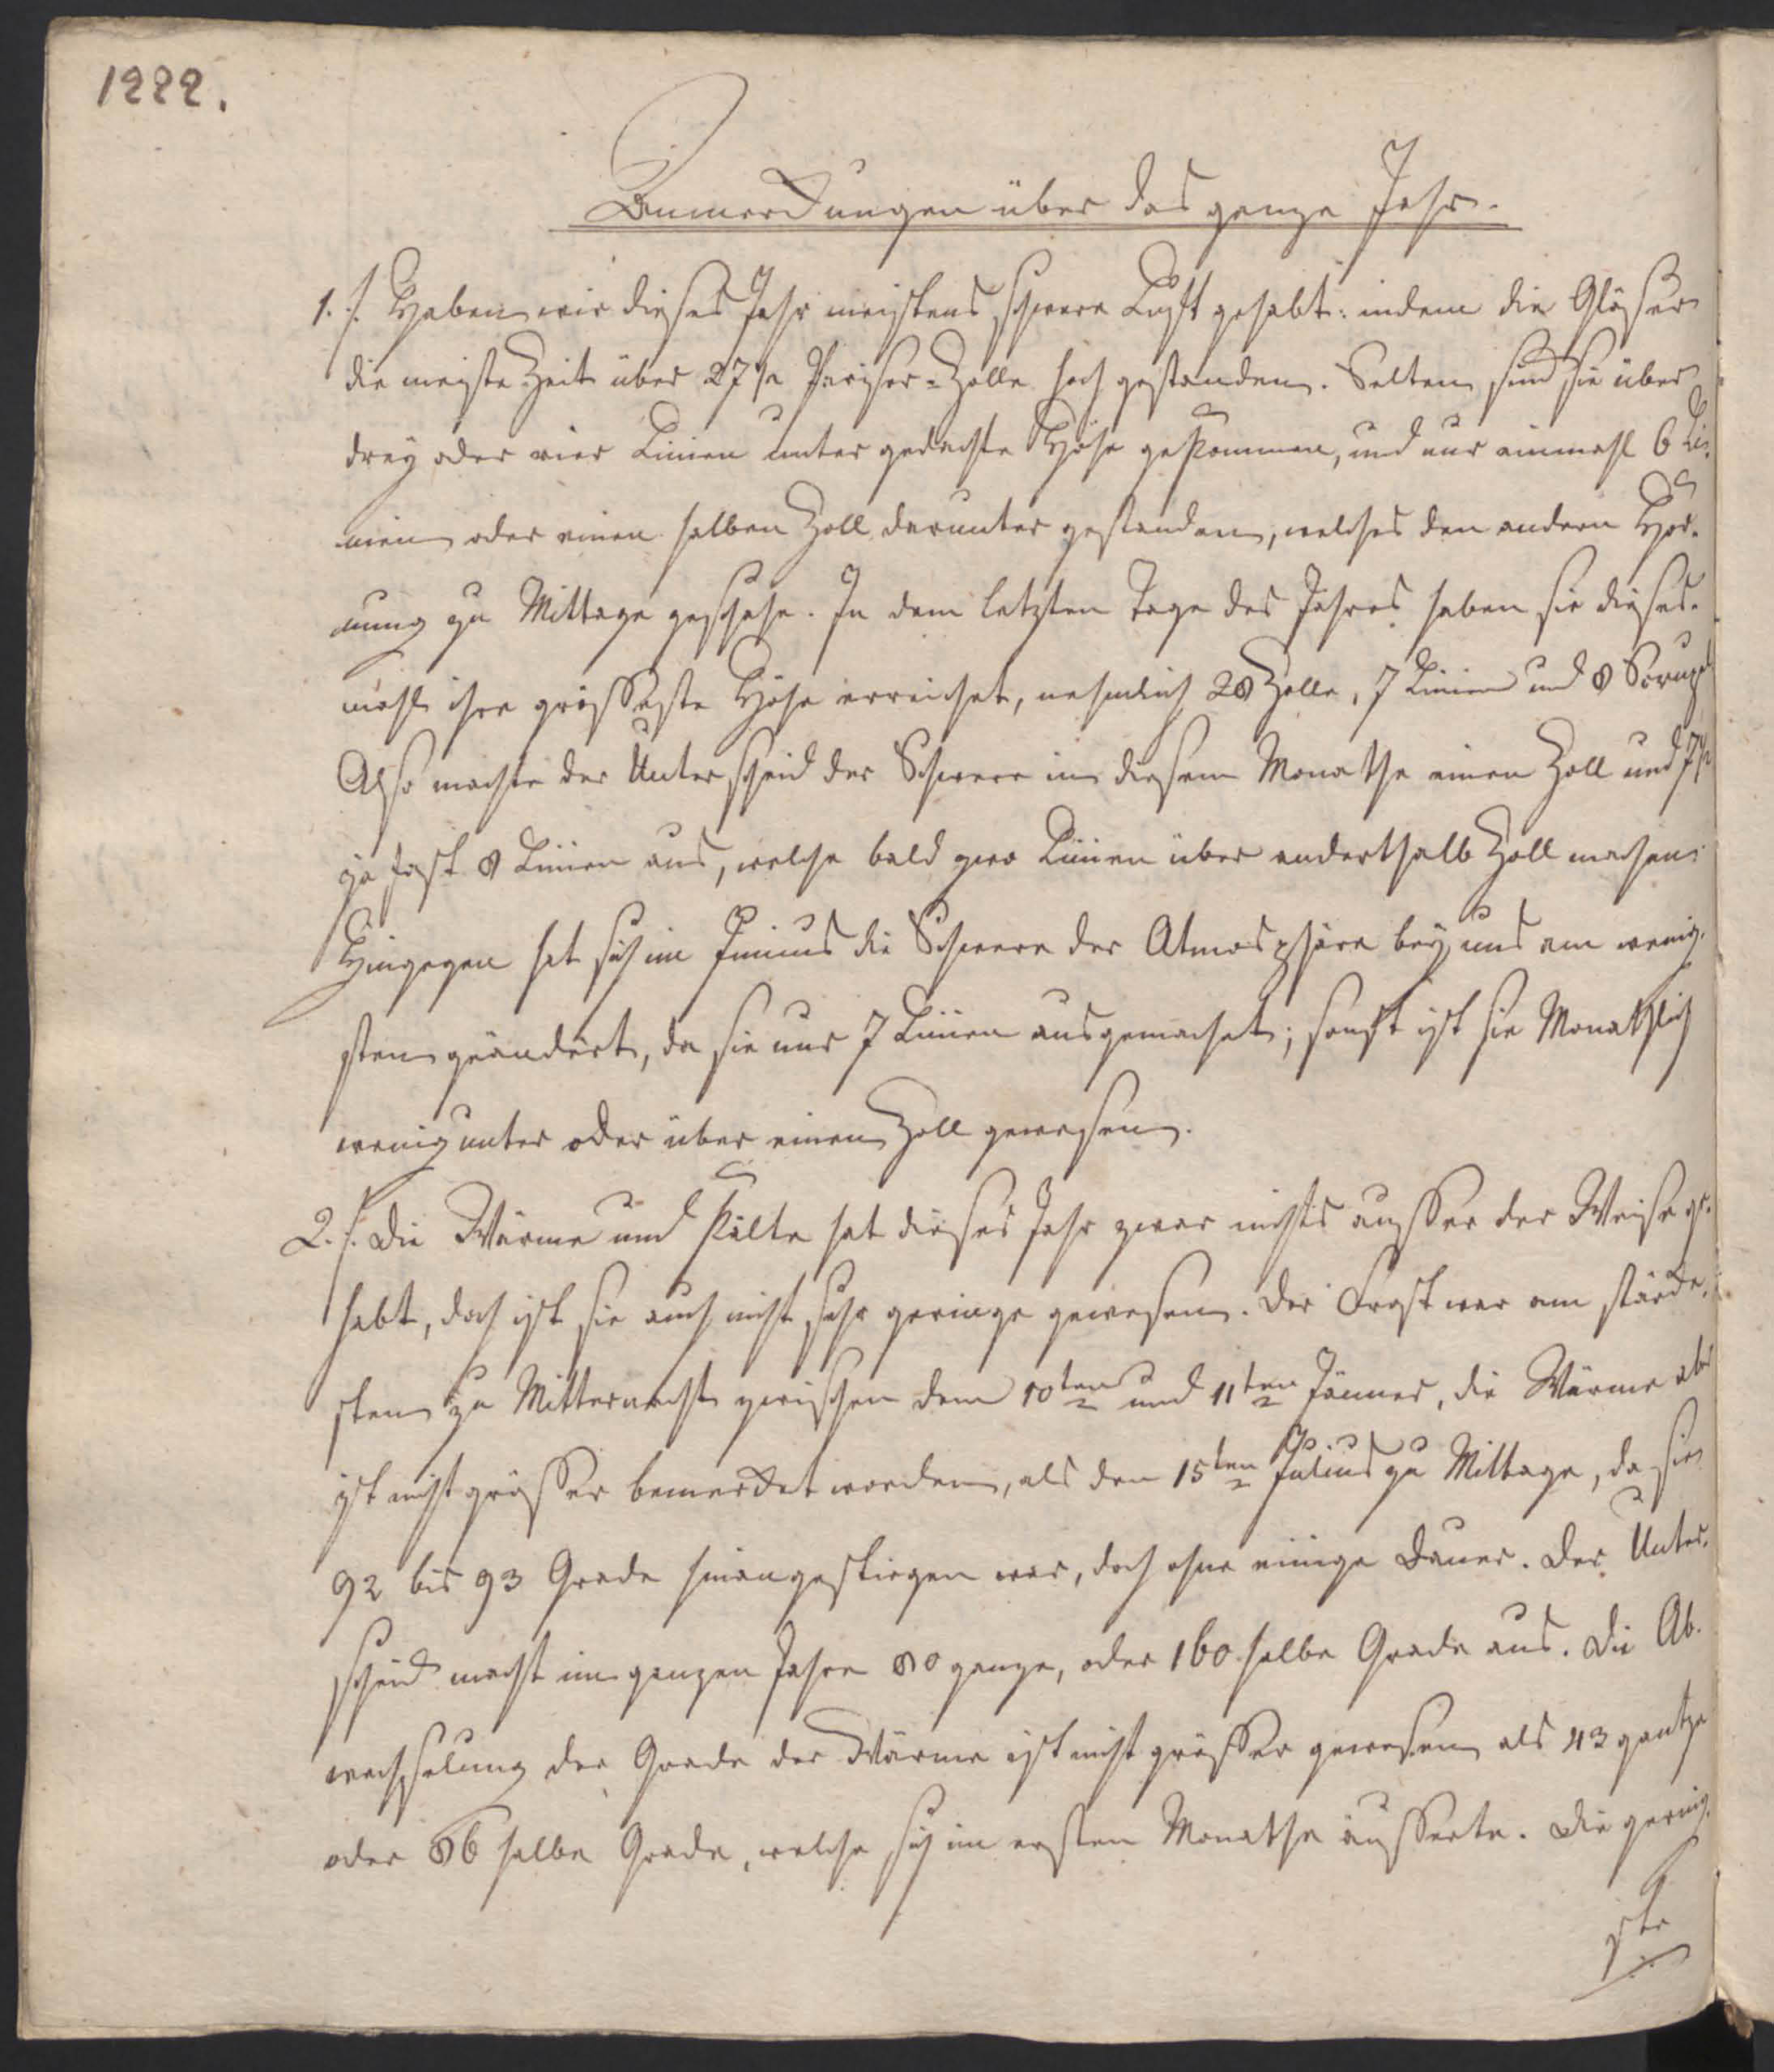 1222.
Anmerckungen über das ganze Jahr.
1. /. Haben wir dieses Jahr meistens schwere Luft gehabt: indem die Gläser
die meiste Zeit über 27 1/2 Pariser-Zolle hoch gestanden. Selten sind sie über
drey oder vier Linien unter gedachte Höhe gekommen, und nur einmahl 6 Li-
nien oder einen halben Zoll darunter gestanden, welches den andern Hor-
nung zu Mittage geschahe. In dem letzten Tage des Jahres haben sie dieses-
mahl ihre grösseste Höhe erreichet, nehmlich 28 Zolle, 7 Linien und 8 Scrupel
Also machte der Unterscheid der Schwere in diesem Monathe einen Zoll und 7 1/2
ja fast 8 Linien aus, welche bald zwo Linien über anderthalb Zoll machen.
Hingegen hat sich im Junius die Schwere der Atmosphäre bey uns am wenig-
sten geändert, da sie nur 7 Linien ausgemachet; sonst ist sie Monathlich
wenig unter oder über einen Zoll gewesen.
2. /. Die Wärme und Kälte hat dieses Jahr zwar nichts ausser der Weise ge-
habt, doch ist sie auch nicht sehr geringe gewesen. Der Frost war am stärcke-
sten zu Mitternacht zwischen dem 10ten und 11ten Jänner, die Wärme aber
ist nicht grösser bemercket worden, als den 15ten Julius zu Mittage, da sie
92 bis 93 Grade hinangestiegen war, doch ohne einige Dauer. Der Unter-
scheid macht im ganzen Jahre 80 ganze, oder 160 halbe Grade aus. Die Ab-
wechselung der Grade der Wärme ist nicht grösser gewesen als 43 gantze
oder 86 halbe Grade, welche sich im ersten Monathe äusserte. Die gering-
ste